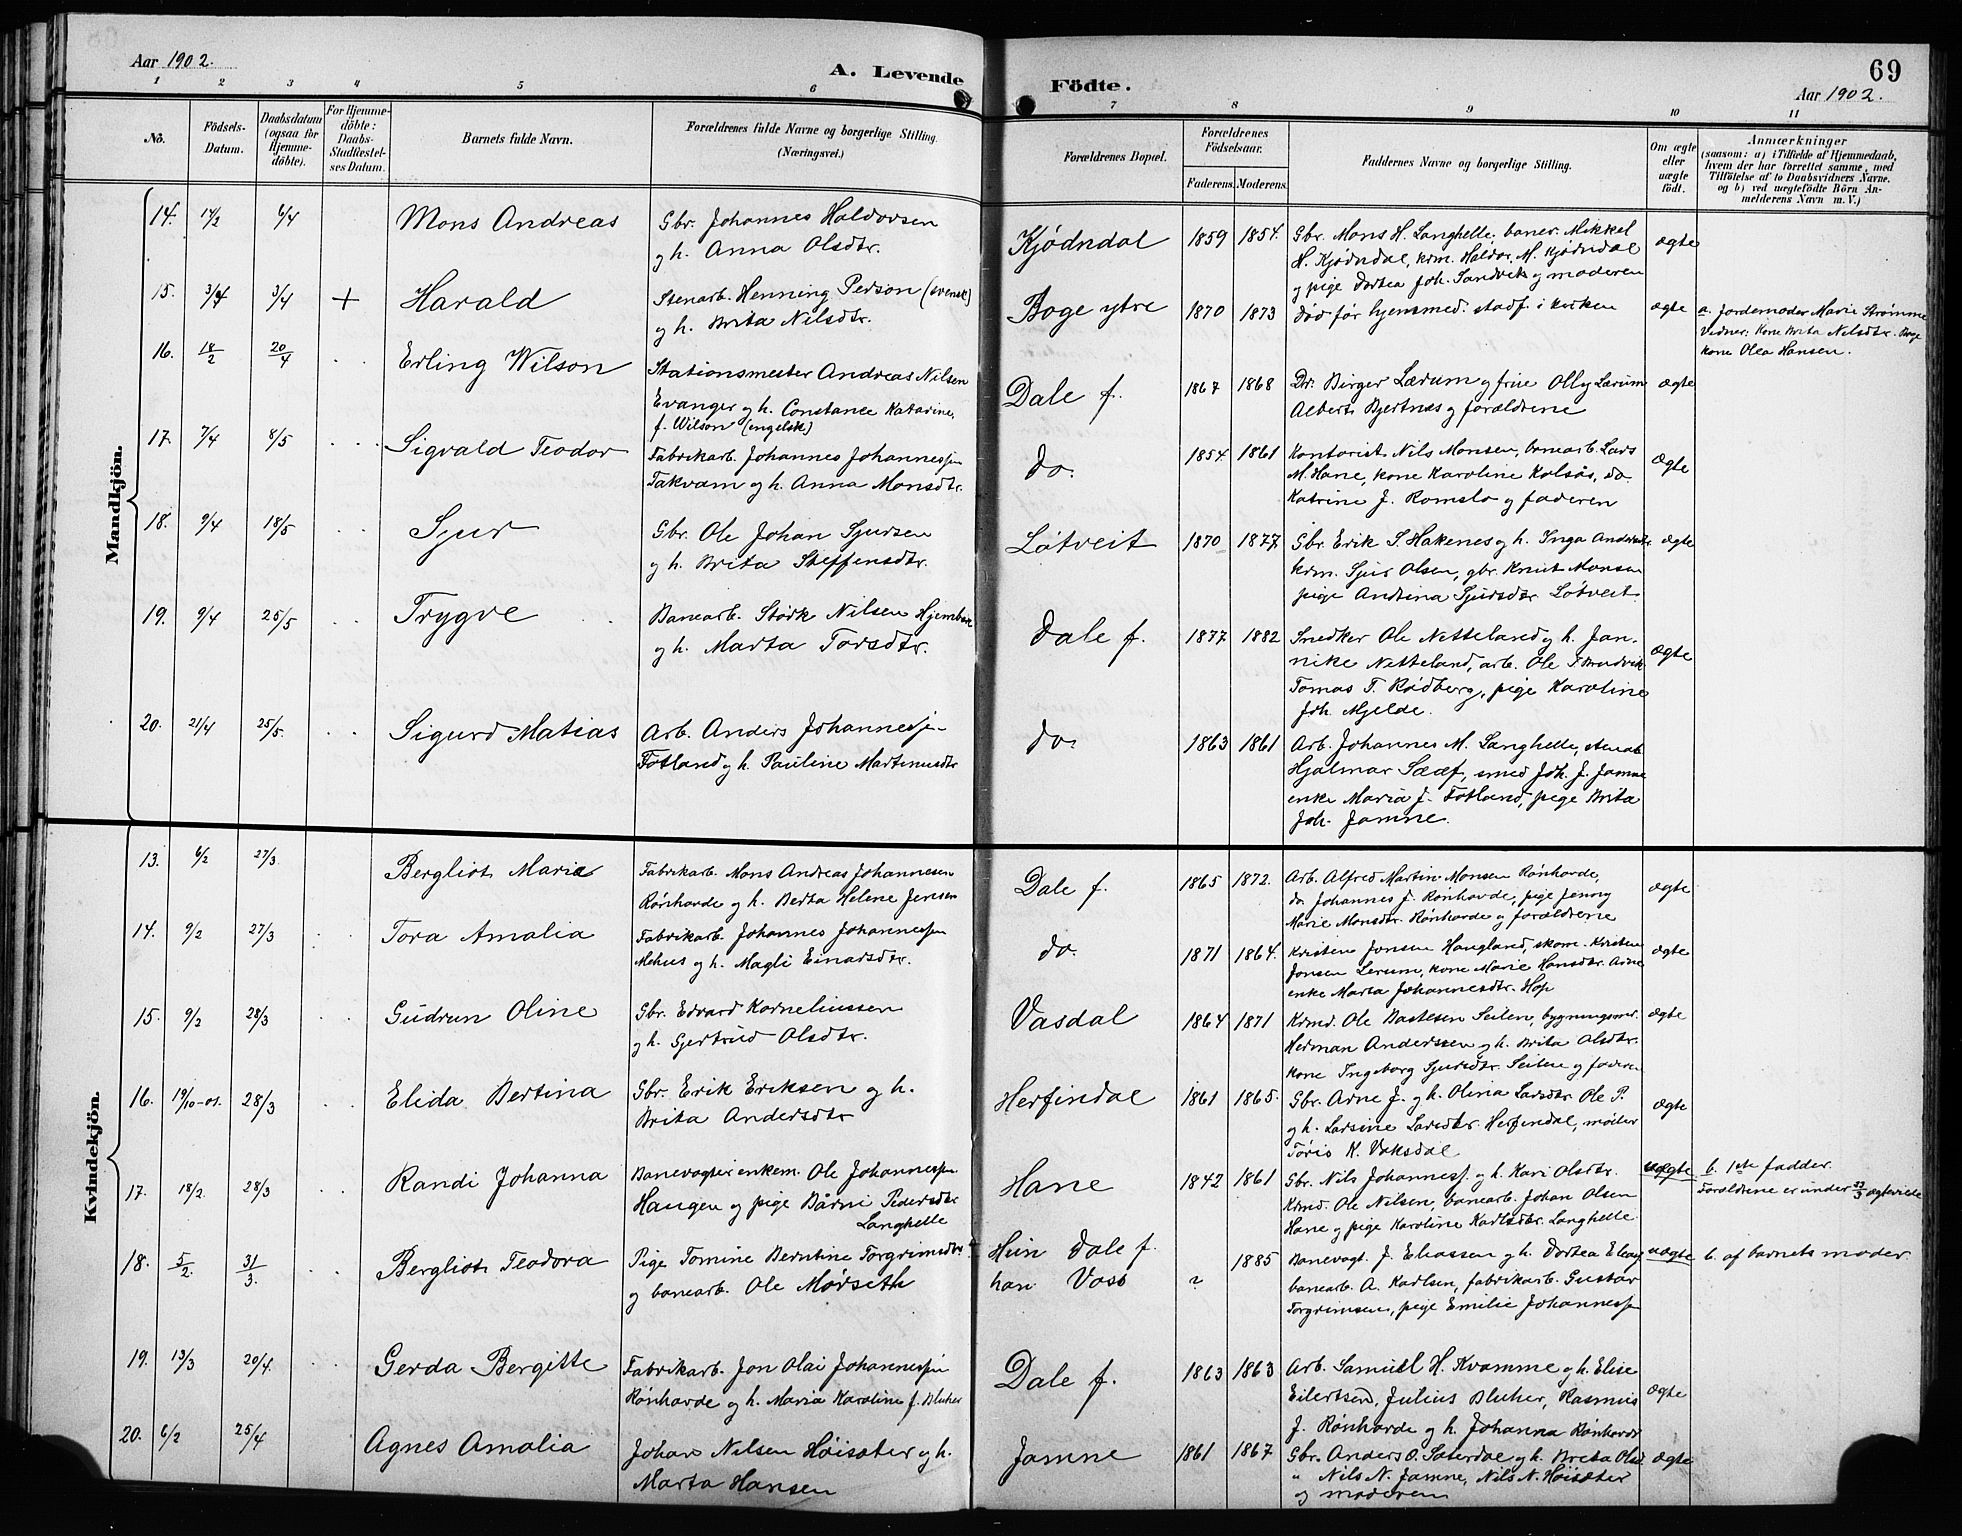 Aar 1902.
A. Levende
Födte.
69
Aar 1902.
1 2 3 4 5 6
7 8 9 10 11
No.
Födsels-
Datum.
Daabsdatum
(ogsaa for
Hjemme-
döbte).
For Hjemme-
döbte:
Daabs-
Stadfæstel-
ses Datum.
Barnets fulde Navn.
Forældrenes fulde Navne og borgerlige Stilling.
(Næringsvei.)
Forældrenes Bopæl.
Forældrenes
Födselsaar.
Faderens. Moderens.
Faddernes Navne og borgerlige Stilling.
Om ægte
eller
uægte
födt.
Anmærkninger
(saasom: a) i Tilfælde af Hjemmedaab,
hvem der har forrettet samme, med
Tilföielse af to Daabsvidners Navne.
og b) ved uægtefödte Börn An-
melderens Navn m. V.)
Mandkjön.
14. 17/2 6/4 Mons Andreas
Gbr. Johannes Haldorsen
og h. Anna Olsdtr.
Kjødndal 1859 1854.
Gbr. Mons H. Langhelle, baner. Mikkel
H. Kjødndal, krm. Haldor M. Kjødndal
og pige Dortea Joh. Sandvik og moderen
ægte
15. 3/4 3/4 + Harald
Stenarb. Henning Person (svensk)
og h. Brita Nilsdtr.
Boge ytre 1870 1873
død før hjemmed. stadf. i kirken
ægte
a. Jordemoder Marie Strømme
Vidner: Kone Brita Nilsdtr. Boge
kone Olea Hansen.
16. 18/2 20/4 Erling Wilson
Stationsmester Andreas Nilsen
Evanger og h. Constance Katarine,
f. Wilson (engelsk)
Dale f. 1867 1868
Dr. Birger Lærum og frue Olly Lærum
Albert Bjertnæs og forældrene
ægte
17. 7/4 8/5 Sigvald Teodor
Fabrikarb. Johannes Johannessen
Takvam og h. Anna Monsdtr.
do. 1854 1861
Kontorist Nils Monsen, banearb. Lars
M. Hane, kone Karoline Kolsås, do
Katrine J. Romslo og faderen
ægte
18. 9/4 18/5 Sjur
Gbr. Ole Johan Sjursen
og h. Brita Steffensdtr.
Løtveit 1870 1877
Gbr. Erik S. Hakenes og h. Inga Andersdtr.
krm. Sjur Olsen, gbr. Knut Monsen
pige Andrina Sjursdtr. Løtveit
ægte
19. 9/4 25/5 Trygve
Banearb. Størk Nilsen
og h. Marta Torsdtr.
Dale f. 1877 1882
Snedker Ole Netteland og h. Jan-
nike Netteland, arb. Ole T. Brudvik
Tomas T. Rødberg, pige Karoline
Joh. Mjelde.
ægte
20. 21/4 25/5. Sigurd Matias
Arb. Anders Johannessen
Fotland og h. Pauline Martinusdtr
do. 1863 1861
Arb. Johannes M. Langhelle, stenarb
Hjalmar Sääf, smed Joh. J. Jamne
enke Maria J. Fotland, pige Brita
Joh. Jamne.
Kvindekjön.
13. 6/2 27/3. Bergliot Marie
Fabrikarb. Mons Andreas Johannesen
Rønhovde og h. Berta Helene Jensen
Dale f. 1865 1872.
Arb. Alfred Martin Monsen Rønhovde,
do Johannes J. Rønhovde, pige Jenny
Marie Monsdtr. Rønhovde og forældrene
ægte
14. 9/2 27/3 Tora Amalia
Fabrikarb. Johannes Johannessen
Mehus og h. Magli Einarsdtr.
do. 1871 1864.
Kristen Jonsen Haugland, skom. Kristen
Jonsen Lerum, kone Marie Hansdtr. Arne
enke Marta Johannesdtr. Hop
ægte
15. 9/2 28/3 Gudrun Oline
Gbr. Edvard Korneliussen
og h. Gjertrud Olsdtr.
Vasdal 1864 1871
Krmd. Ole Bastesen Seilen, bygningsmd.
Herman Anderssen og h. Brita Olsdtr.
kone Ingeborg Sjursdtr. Seilen og faderen
ægte
16. 19/10-01. 28/3 Elida Bertina
Gbr. Erik Eriksen og h.
Brita Andersdtr
Herfindal 1861 1865.
Gbr. Arne J. og h. Olina Larsdtr. Ole P.
og h. Larsine Larsdtr. Herfindal, møller
Tøris K. Vaksdal
ægte
17. 18/2. 28/3 Randi Johanna
Banevogter enkem. Ole Johannessen
Haugen og pige Bårni Pedersdtr
Langhelle
Hane 1842 1861
Gbr. Nils Johanness. og h. Kari Olsdtr.
Krmd. Ole Nilsen, banearb. Johan Olsen
Hane og pige Karoline Karlsdtr. Langhelle
uægte
b. 1ste fadder.
Forældrene er under 23/3 ægteviede
18. 5/2. 31/3. Bergliot Teodora
Pige Tomine Berntine Torgrimsdtr
og banearb. Ole Mørseth
Hun Dale f.
han Voss ? 1885
Banevogt. J. Eliassen og h. Dortea Eliass
banearb. A. Karlsen, fabrikarb. Gustav
Torgrimsen, pige Emilie Johannessen
uægte
b. af barnets moder.
19. 13/3 20/4. Gerda Bergitte
Fabrikarb. Jon Olai Johannessen
Rønhovde og h. Maria Karoline f. Bluher
Dale f. 1863 1863
Arb. Samuel H. Kvamme og h. Elise
Eilertsen, Julius Bluher, Rasmus
J. Rønhovde og h. Johanna Rønhovde
ægte
20. 6/2 25/4 Agnes Amalia
Johan Nilsen Høisæter og h.
Marta Hansen
Jamne 1861 1867
Gbr. Anders O. Sæterdal og h. Brita Olsd
" Nils N. Jamne, Nils N. Høisæter
og moderen
ægte